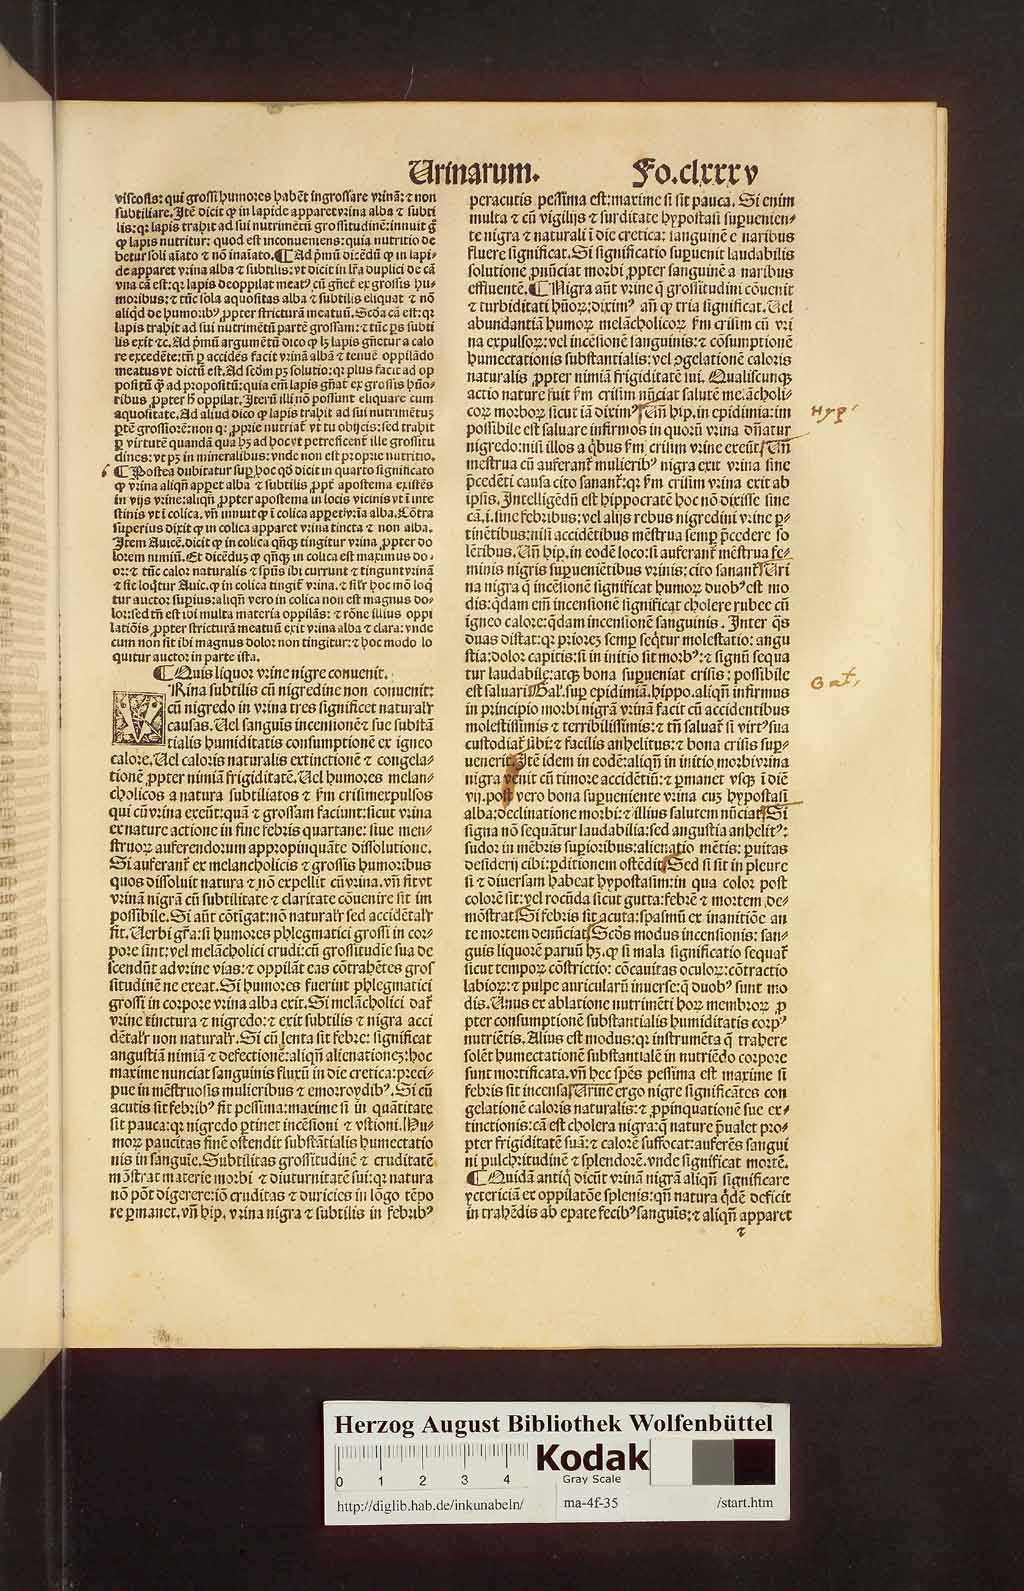 Urinarum. Fo.clxxxv
viscosis: qui grossi humores habēt ingrossare vrinā: ⁊ non
subtiliare. Itē dicit ꝙ in lapide apparet vrina alba ⁊ subti
lis: qꝛ lapis trahit ad sui nutrimētū grossitudinē: innuit ḡ
ꝙ lapis nutritur: quod est inconueniens: quia nutritio de
betur soli aīato ⁊ nō inaīato. ¶ Ad pͥmū dicēdū ꝙ in lapi-
de apparet vrina alba ⁊ subtilis: vt dicit in lr̄a duplici de cā
vna cā est: qꝛ lapis de oppilat meatꝰ cū gn̄et̄ ex grossis hu-
moribus: ⁊ tūc sola aquositas alba ⁊ subtilis eliquat̄ ⁊ nō
aliqd̓ de humoribꝰ ꝓpter stricturā meatuū. Scd̓a cā est: qꝛ
lapis trahit ad sui nutrimētū partē grossam: ⁊ tūc ꝑs subti
lis exit ⁊c. Ad pͥmū argumētū dico ꝙ lꝫ lapis gn̄etur a calo
re excedēte: tn̄ ꝑ accidēs facit vrinā albā ⁊ tenuē oppilādo
meatus vt dictū est. Ad scd̓m pꝫ solutio: qꝛ plus facit ad op
positū ꝙ̄ ad propositū: quia em̄ lapis gn̄at̄ ex grossis hūo-
ribus ꝓpter h̓ oppilat. Iterū illi nō possunt eliquare cum
aquositate. Ad aliud dico ꝙ lapis trahit ad sui nutrimētuꝫ
ꝑtē grossiorē: non qꝛ ꝓprie nutriat̄ vt tu obijcis: sed trahit
ꝑ virtutē quandā qua hꝫ ad hoc vt petreficent̄ ille grossitu
dines: vt pꝫ in mineralibus: vnde non est proprie nutritio.
¶ Postea dubitatur suꝑ hoc qd̓ dicit in quarto significato
ꝙ vrina aliqn̄ apꝑet alba ⁊ subtilis ꝓpt̓ apostema existēs
in vijs vrine: aliqn̄ ꝓpter apostema in locis vicinis vt ī inte
stinis vt ī colica. vn̄ innuit ꝙ ī colica apꝑet vrīa alba. Cōtra
superius dixit ꝙ in colica apparet vrina tincta ⁊ non alba.
Item Auicē. dicit ꝙ in colica qn̄qꝫ tingitur vrina ꝓpter do
lorem nimiū. Et dicēduꝫ ꝙ qn̄qꝫ in colica est maximus do-
or: ⁊ tūc calor naturalis ⁊ spūs ibi currunt ⁊ tingunt vrinā
⁊ sic loqͥtur Auic. ꝙ in colica tingit̄ vrina. ⁊ sil̓r hoc mō loqͥ
tur auctor suꝑius: aliqn̄ vero in colica non est magnus do-
lor: sed tn̄ est ibi multa materia oppilās: ⁊ rōne illius oppi
latiōis ꝓpter stricturā meatuū exit vrina alba ⁊ clara: vnde
cum non sit ibi magnus dolor non tingitur: ⁊ hoc modo lo
quitur auctor in parte ista.
¶ Quis liquor vrine nigre conuenit.
VRina subtilis cū nigredine non conuenit:
cū nigredo in vrina tres significet natural̓r
causas. Uel sanguis incensionē ⁊ sue substā
tialis humiditatis consumptionē ex igneo
calore. Uel caloris naturalis extinctionē ⁊ congela-
tionē ꝓpter nimiā frigiditatē. Uel humores melan-
cholicos a natura subtiliatos ⁊ ẜm crisim expulsos
qui cū vrina exeūt: quā ⁊ grossam faciunt: sicut vrina
ex nature actione in fine febris quartane: siue men-
struoꝝ auferendorum appropinquāte dissolutione.
Si auferant̄ ex melancholicis ⁊ grossis humoribus
quos dissoluit natura ⁊ nō expellit cū vrina. vn̄ fit vt
vrinā nigrā cū subtilitate ⁊ claritate cōuenire sit im
possibile. Si aūt cōtigat: nō natural̓r sed accidētal̓r
fit. Uerbi gr̄a: si humores phlegmatici grossi in cor-
pore sint: vel melancholici crudi: cū grossitudīe sua de
scendūt ad vrine vias: ⁊ oppilāt eas cōtrahētes gros
situdinē ne exeat. Si humores fuerint phlegmatici
grossi in corpore vrina alba exit. Si melācholici dat̄
vrine tinctura ⁊ nigredo: ⁊ exit subtilis ⁊ nigra acci
dētal̓r non natural̓r. Si cū lenta sit febre: significat
angustiā nimiā ⁊ defectionē: aliqn̄ alienationeꝫ: hoc
maxime nunciat sanguinis fluxū in die cretica: preci-
pue in mēstruosis mulieribus ⁊ emorroydibꝰ. Si cū
acutis sit febribꝰ fit pessima: maxime si in quātitate
sit pauca: qꝛ nigredo ꝑtinet incēsioni ⁊ vstioni. Hu-
moꝝ paucitas finē ostendit substātialis humectatio
nis in sanguīe. Subtilitas grossitudinē ⁊ cruditatē
mōstrat materie morbi ⁊ diuturnitatē sui: qꝛ natura
nō pōt digerere: iō cruditas ⁊ duricies in lōgo tēpo
re ꝑmanet. vn̄ hip. vrina nigra ⁊ subtilis in febribꝰ
peracutis pessima est: maxime si sit pauca. Si enim
multa ⁊ cū vigilijs ⁊ surditate hypostasi suꝑuenien-
te nigra ⁊ naturali ī die cretica: sanguinē e naribus
fluere significat. Si significatio suꝑuenit laudabilis
solutionē ꝓnūciat morbi ꝓpter sanguinē a naribus
effluentē. ¶ Nigra aūt vrine q̄ grossitudini cōuenit
⁊ turbiditati hūoꝝ: diximꝰ aū ꝙ tria significat. Uel
abundantiā humoꝝ melācholicoꝝ ẜm crisim cū vri
na expulsoꝝ: vel incēsionē sanguinis: ⁊ cōsumptionē
humectationis substantialis: vel ꝯgelationē caloris
naturalis ꝓpter nimiā frigiditatē sui. Qualiscunqꝫ
actio nature fuit ẜm crisim nūciat salutē melācholi-
coꝝ morboꝝ sicut iā diximꝰ. Tn̄ hip. in epidimia: im
possibile est saluare infirmos in quorū vrina dn̄atur
nigredo: nisi illos a qͥbus ẜm crisim vrine exeūt. Un̄
mestrua cū auferant̄ mulieribꝰ nigra exit vrina sine
p̄cedēti causa cito sanant̄: qꝛ ẜm crisim vrina exit ab
ipsis. Intelligēdū est hippocratē hoc nō dixisse sine
cā. i. sine febribus: vel alijs rebus nigredini vrine ꝑ-
tinētibus: nisi accidētibus mēstrua semꝑ p̄cedere so
lētibus. Un̄ hip. in eodē loco: si auferant̄ mēstrua fe-
minis nigris suꝑueniētibus vrinis: cito sanant̄. Uri
na nigra q̄ incēsionē significat humoꝝ duobꝰ est mo
dis: qͣdam em̄ incensionē significat cholere rubee cū
igneo calore: qͣdam incensionē sanguinis. Inter qͣs
duas distat: qꝛ priorez semꝑ seqͥtur molestatio: angu
stia: dolor capitis: si in initio sit morbꝰ: ⁊ signū sequa
tur laudabile: atqꝫ bona suꝑueniat crisis: possibile
est saluari. Gal̓. suꝑ epidimiā. hippo. aliqn̄ infirmus
in principio morbi nigrā vrinā facit cū accidentibus
molestissimis ⁊ terribilissimis: ⁊ tn̄ saluat̄ si virtꝰ sua
custodiat̄ sibi: ⁊ facilis anhelitus: ⁊ bona crisis suꝑ-
uenerit. Itē idem in eodē: aliqn̄ in initio morbi vrina
nigra venit cū timore accidētiū: ⁊ ꝑmanet vsqꝫ ī diē
vij. post vero bona suꝑueniente vrina cuꝫ hypostasi
alba: declinatione morbi: ⁊ illius salutem nūciat. Si
signa nō sequātur laudabilia: sed angustia anhelitꝰ:
sudor in mēbris suꝑioribus: alienatio mētis: ꝑuitas
desiderij cibi: ꝑditionem ostēdit. Sed si sit in pleure
si ⁊ diuersam habeat hypostasim: in qua color post
colorē sit: vel rocūda sicut gutta: febrē ⁊ mortem de-
mōstrat. Si febris sit acuta: spasmū ex inanitiōe an
te mortem denūciat. Scd̓s modus incensionis: san-
guis liquorē parum hꝫ. ꝙ si mala significatio sequat̄
sicut tempoꝝ cōstrictio: cōcauitas oculoꝝ: cōtractio
labioꝝ: ⁊ pulpe auricularū inuerse: q̄ duobꝰ sunt mo
dis. Unus ex ablatione nutrimēti hoꝝ membroꝝ ꝓ
pter consumptionē substantialis humiditatis corpꝰ
nutriētis. Alius est modus: qꝛ instrumēta q̄ trahere
solēt humectationē substantialē in nutriēdo corpore
sunt mortificata. vn̄ hec spēs pessima est maxime si
febris sit incensa. Urine ergo nigre significātes con
gelationē caloris naturalis: ⁊ ꝓpinquationē sue ex-
tinctionis: cā est cholera nigra: q̄ nature p̄ualet pro-
pter frigiditatē suā: ⁊ calorē suffocat: auferēs sangui
ni pulchritudinē ⁊ splendorē. vnde significat mortē.
¶ Quidā antiqͥ dicūt vrinā nigrā aliqn̄ significare
yctericiā ex oppilatōe splenis: qn̄ natura qͥdē deficit
in trahēdis ab epate fecibꝰ sanguīs: ⁊ aliqn̄ apparet
⁊
Hyp
Gal.
Herzog August Bibliothek Wolfenbüttel
0 1 2 3 4
Kodak
Gray Scale
http://diglib.hab.de/inkunabeln/ ma-4f-35 /start.htm